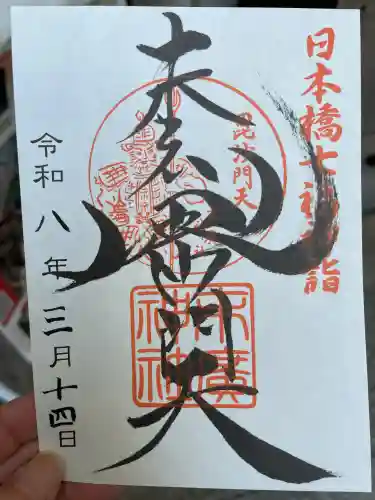 日本橋七福神詣
毘沙門天
毘沙門天
末廣神社
令和八年三月十四日